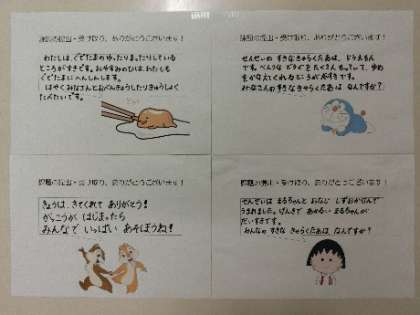 課題の提出・受け取り、ありがとうございます！
わたしは、ぐでたまのゆったりまったりしている
ところがすきです。おやすみのひは、わたしも
ぐでたまにへんしんします。
はやくみなさんとおべんきょうしたりきゅうしょく
たべたいです。
課題の提出・受け取り、ありがとうございます！
せんせいの すきなきゃらくたあは、ドラえもん
です。べんりな どうぐを たくさん もっていて、ゆめ
をかなえてくれるところがすきです。
みなさんの すきな きゃらくたあは なんですか？
課題の提出・受け取り、ありがとうございます！
きょうは、きてくれて ありがとう！
がっこうが はじまったら
みんなで いっぱい あそぼうね！
課題の提出・受け取り、ありがとうございます！
せんせいは まるちゃんと おなじ しずおかけんで
うまれました。げんきで あかるい まるちゃんが
だいすきです。
みんなの すきな きゃらくたあは、なんですか？